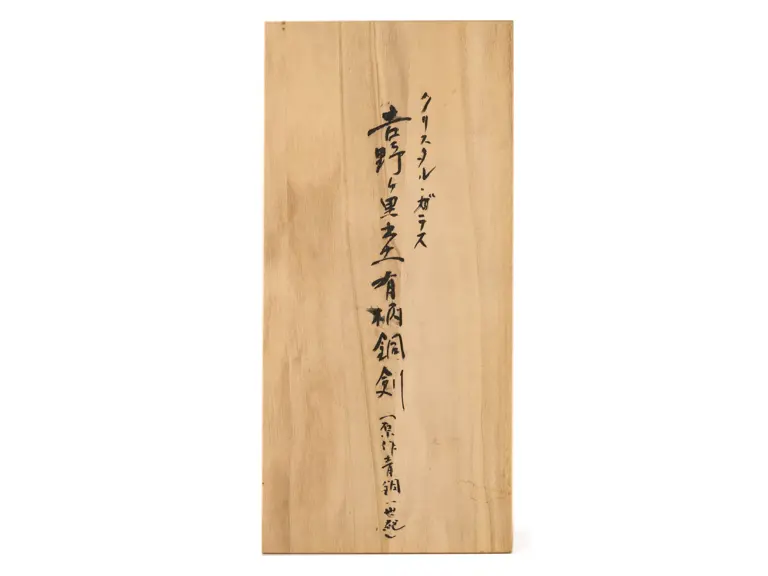 クリスタル・ガラス
吉野ヶ里出土有柄銅剣
(原作青銅一世紀)